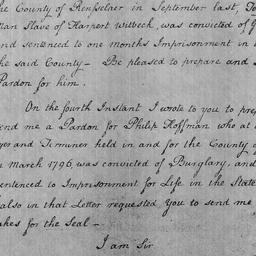 the County of Rensselaer in September last, To
man Slave of Harpert Witbeck, was convicted of G
and sentenced to one months Imprisonment in
the said County — Be pleased to prepare and
Pardon for him.
On the fourth Instant I wrote to you to prep
send me a Pardon for Philip Hoffman who at a
yer and Terminer held in and for the County of
March 1796, was convicted of Burglary, and
sentenced to Imprisonment for Life in the State
also in that Letter requested You to send me
akes for the Seal —
I am Sir